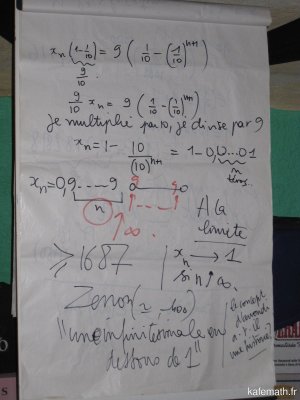 xₙ (1 - 1/10) = 9 ( 1/10 - (1/10)ⁿ⁺¹ )
9/10
9/10 xₙ = 9 ( 1/10 - (1/10)ⁿ⁺¹ )
Je multiplie par 10, je divise par 9
xₙ = 1 - 10/(10)ⁿ⁺¹ = 1 - 0,0...01
n
xₙ = 0,9....9
n
∞
A la
limite
xₙ → 1
si n ↑ ∞
≥ 1687
Zenon (≃ -400)
"une infinitésimale en
dessous de 1"
le concept
a-t-il
une histoire?
kafemath.fr